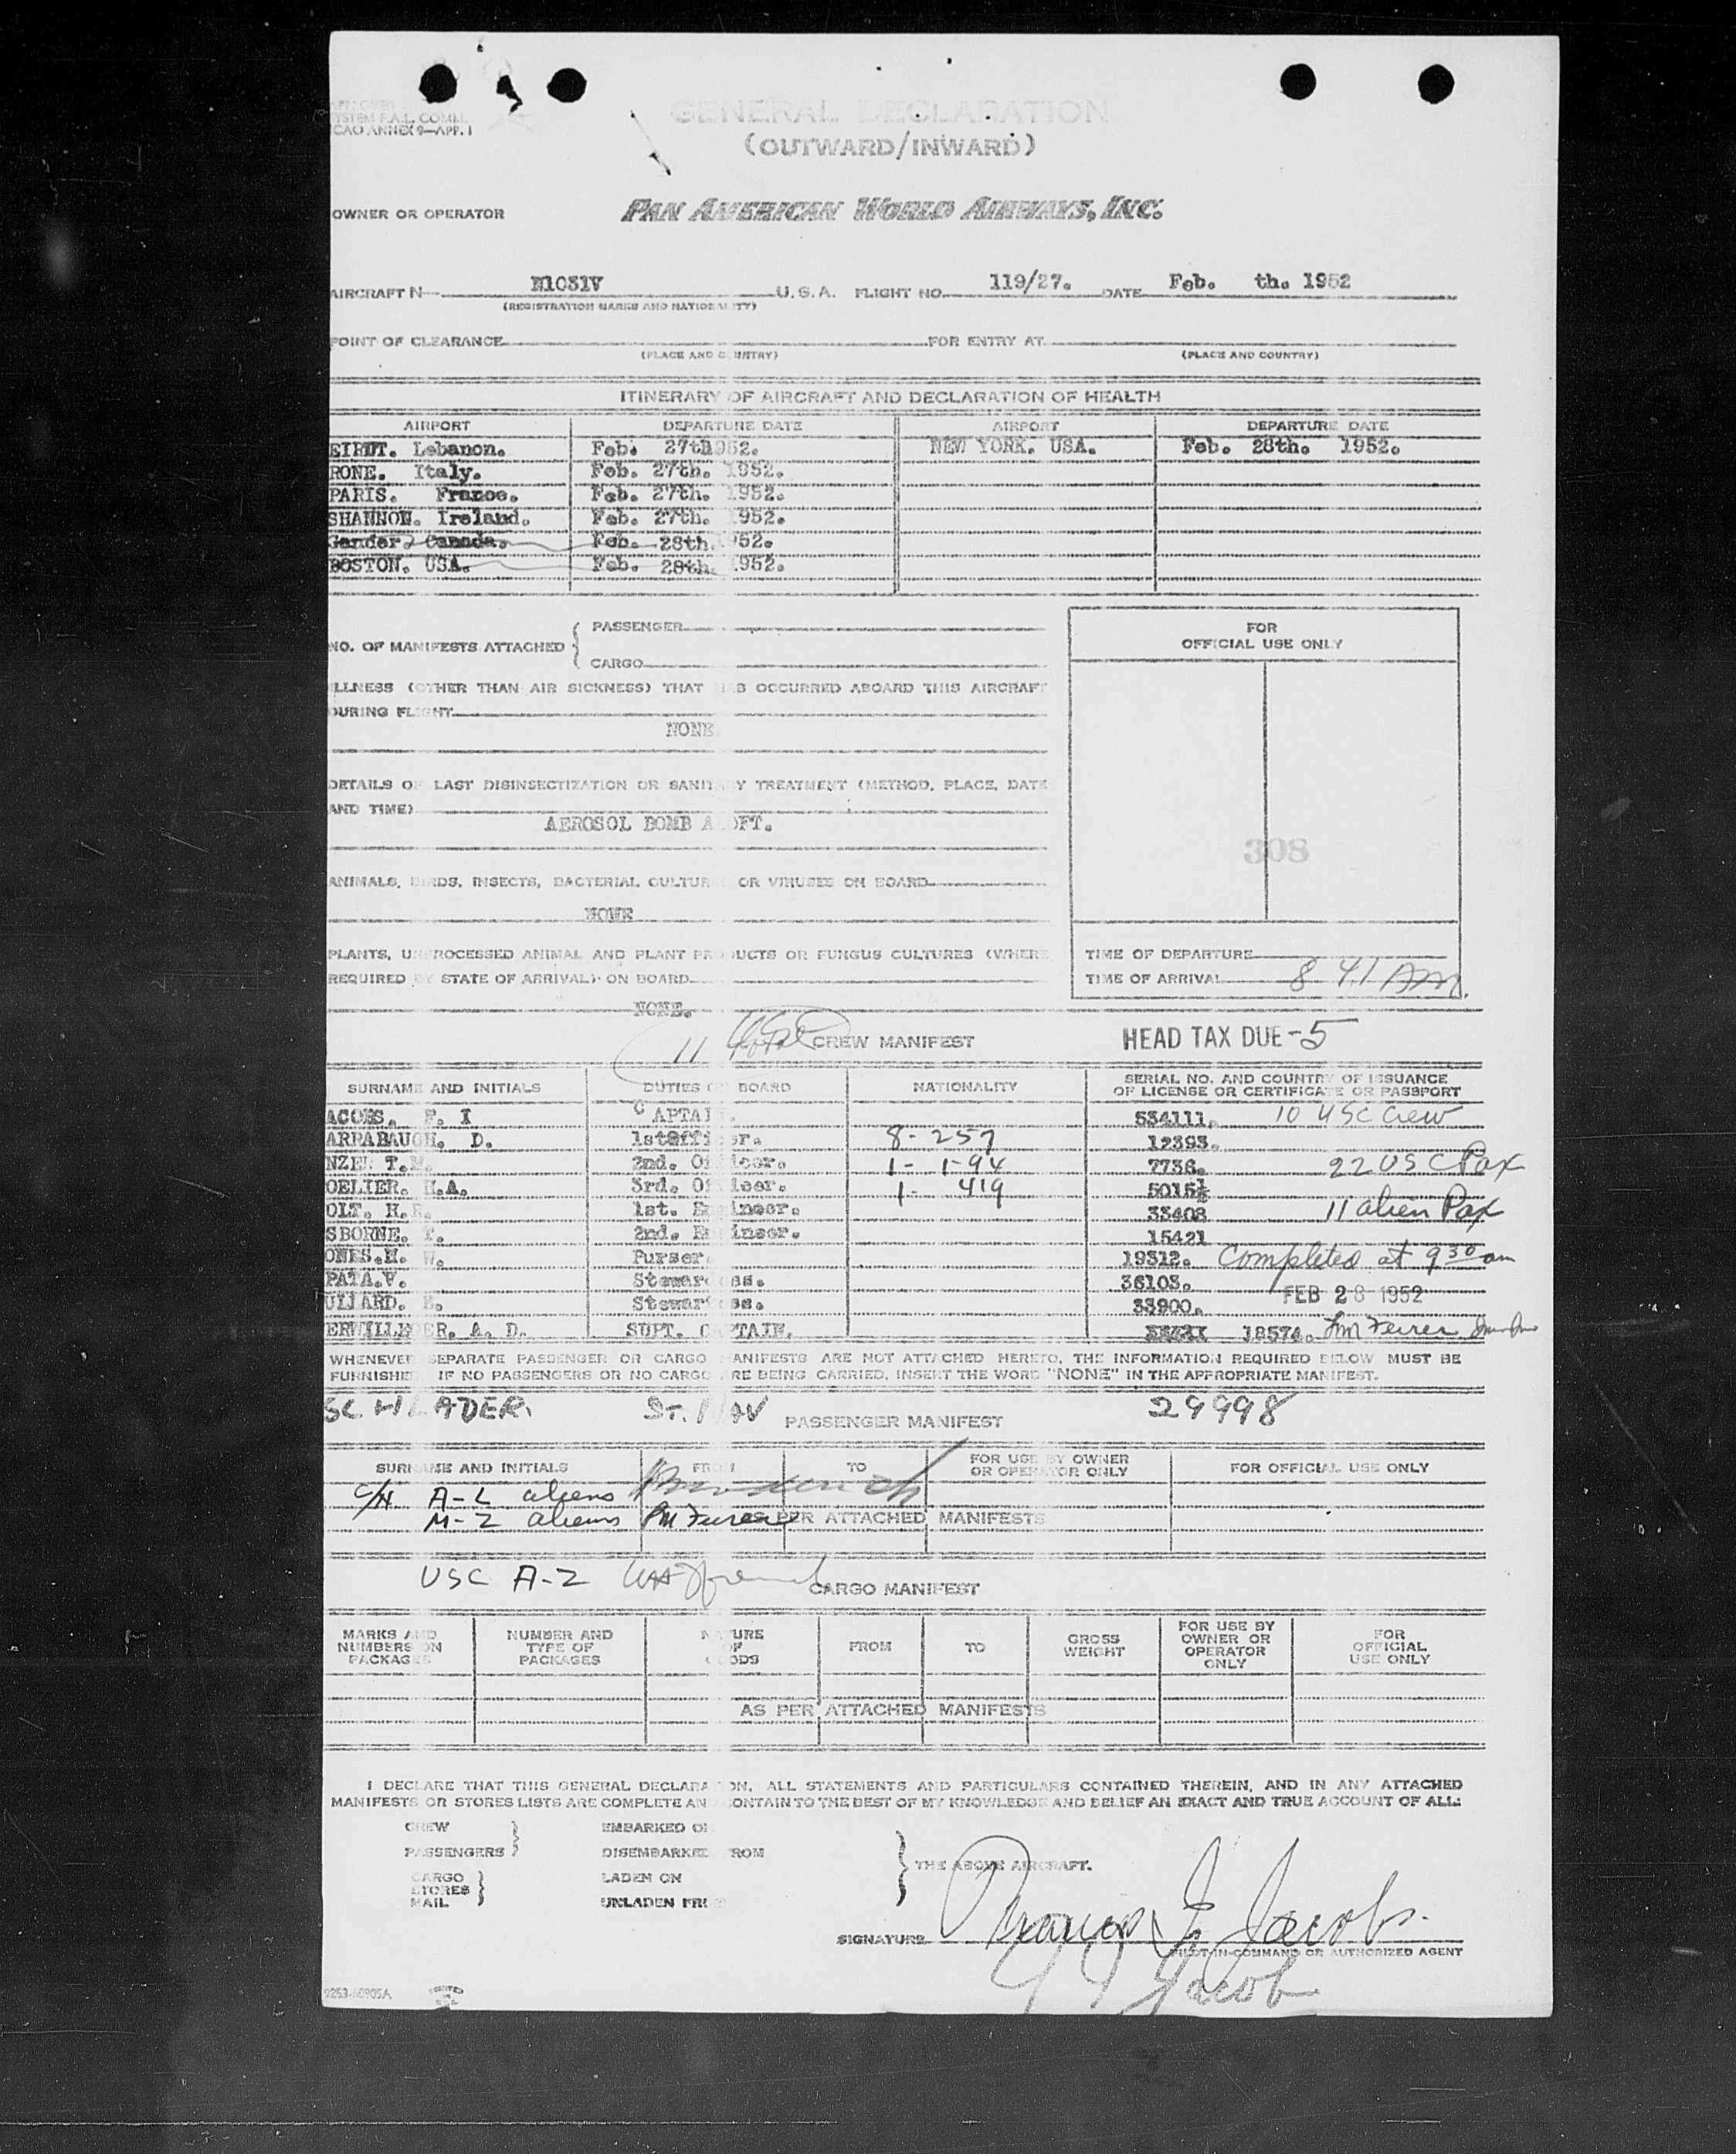 SYSTEM F.A.L. COMM.
CAO ANNEX 9—APP. 1
GENERAL DECLARATION
(OUTWARD/INWARD)
OWNER OR OPERATOR PAN AMERICAN WORLD AIRWAYS, INC.
AIRCRAFT N— N1031V U.S.A. FLIGHT NO. 119/27. DATE Feb. th. 1952
(REGISTRATION MARKS AND NATIONALITY)
POINT OF CLEARANCE FOR ENTRY AT
(PLACE AND COUNTRY) (PLACE AND COUNTRY)
ITINERARY OF AIRCRAFT AND DECLARATION OF HEALTH
AIRPORT DEPARTURE DATE AIRPORT DEPARTURE DATE
EIRUT. Lebanon. Feb. 27th 952. NEW YORK. USA. Feb. 28th. 1952.
ROME. Italy. Feb. 27th. 1952.
PARIS. France. Feb. 27th. 1952.
SHANNON. Ireland. Feb. 27th. 1952.
Gander. Canada. Feb. 28th. 952.
BOSTON. USA. Feb. 28th. 1952.
NO. OF MANIFESTS ATTACHED { PASSENGER
CARGO
FOR
OFFICIAL USE ONLY
ILLNESS (OTHER THAN AIR SICKNESS) THAT HAS OCCURRED ABOARD THIS AIRCRAFT
DURING FLIGHT
NONE
DETAILS OF LAST DISINSECTIZATION OR SANITARY TREATMENT (METHOD, PLACE, DATE
AND TIME)
AEROSOL BOMB ALOFT.
308
ANIMALS, BIRDS, INSECTS, BACTERIAL CULTURES OR VIRUSES ON BOARD
NONE
PLANTS, UNPROCESSED ANIMAL AND PLANT PRODUCTS OR FUNGUS CULTURES (WHERE
REQUIRED BY STATE OF ARRIVAL) ON BOARD
NONE.
TIME OF DEPARTURE
TIME OF ARRIVAL 8 41 AM.
11 total CREW MANIFEST HEAD TAX DUE-5
SURNAME AND INITIALS DUTIES ON BOARD NATIONALITY SERIAL NO. AND COUNTRY OF ISSUANCE
OF LICENSE OR CERTIFICATE OR PASSPORT
ACOBS. F. I CAPTAIN. 534111. 10 USC Crew
ARRABAUGH. D. 1stOfficer. 8-257 12393.
2nd. Officer. 1- 1-94 7736. 22 USC Pax
OELIER. H.A. 3rd. Officer. 1- 419 5015½
OLT. H. 1st. Engineer. 33408 11 alien Pax
SBORNE. 2nd. Engineer. 15421
ONES. W. Purser. 19312. Completed at 9 30 am
PATA.V. Stewardess. 36103. FEB 28 1952
ULLARD. Stewardess. 33900.
ERWILLEGER. A. D. SUPT. CAPTAIN. 18574.
WHENEVER SEPARATE PASSENGER OR CARGO MANIFESTS ARE NOT ATTACHED HERETO, THE INFORMATION REQUIRED BELOW MUST BE
FURNISHED. IF NO PASSENGERS OR NO CARGO ARE BEING CARRIED, INSERT THE WORD "NONE" IN THE APPROPRIATE MANIFEST.
SCHLADER. ST. NAV 29998
PASSENGER MANIFEST
SURNAME AND INITIALS FROM TO FOR USE BY OWNER
OR OPERATOR ONLY FOR OFFICIAL USE ONLY
C/H A-L aliens
M-Z aliens AS PER ATTACHED MANIFESTS
USC A-Z CARGO MANIFEST
MARKS AND
NUMBERS ON
PACKAGES NUMBER AND
TYPE OF
PACKAGES NATURE
OF
GOODS FROM TO GROSS
WEIGHT FOR USE BY
OWNER OR
OPERATOR
ONLY FOR
OFFICIAL
USE ONLY
AS PER ATTACHED MANIFESTS
I DECLARE THAT THIS GENERAL DECLARATION, ALL STATEMENTS AND PARTICULARS CONTAINED THEREIN, AND IN ANY ATTACHED
MANIFESTS OR STORES LISTS ARE COMPLETE AND CONTAIN TO THE BEST OF MY KNOWLEDGE AND BELIEF AN EXACT AND TRUE ACCOUNT OF ALL:
CREW EMBARKED ON
PASSENGERS DISEMBARKED FROM
CARGO LADEN ON
STORES
MAIL UNLADEN FROM
THE ABOVE AIRCRAFT.
SIGNATURE Francis I. Jacobs.
PILOT-IN-COMMAND OR AUTHORIZED AGENT
Jacob